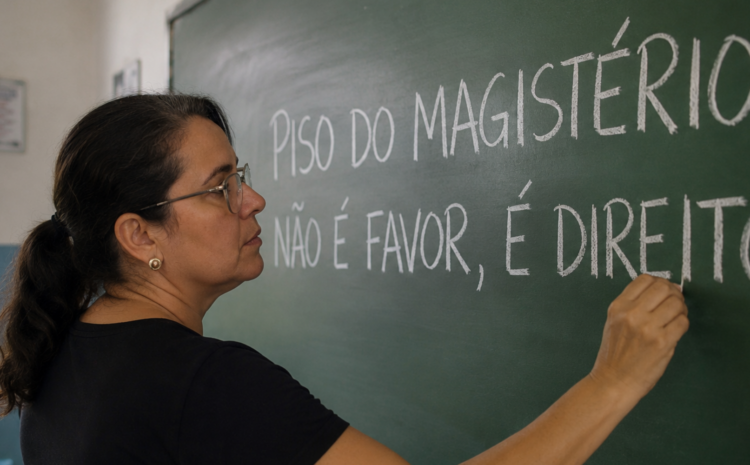 PISO DO MAGISTÉRIO
NÃO É FAVOR, É DIREITO